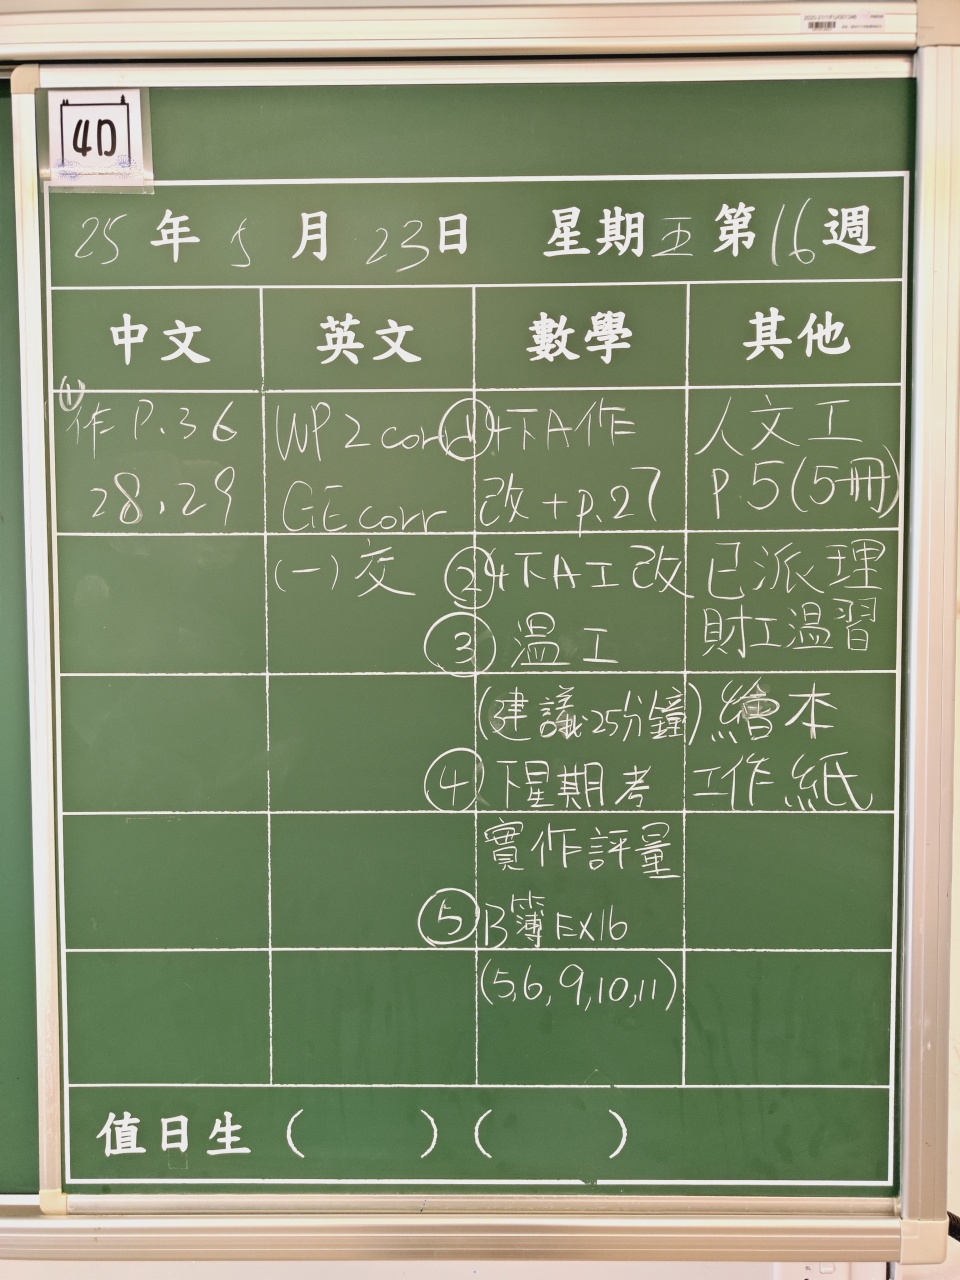 4D
25年5月23日 星期五第16週
中文 英文 數學 其他
①
作 P.36
28,29
WP2 corr
GE corr
(一)交
①4下A作
改+p.27
②4下A工改
③溫工
(建議25分鐘)
④下星期考
實作評量
⑤B簿Ex16
(5,6,9,10,11)
人文工
P.5(5冊)
已派理
財工溫習
繪本
工作紙
值日生 ( ) ( )